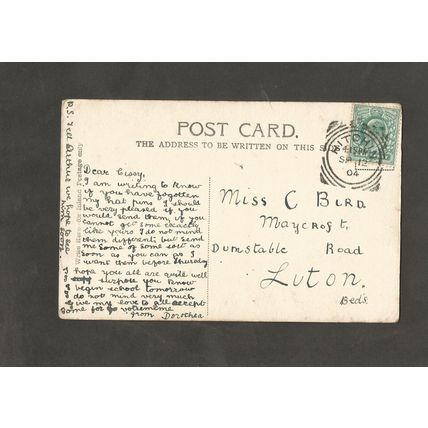 POST CARD.
THE ADDRESS TO BE WRITTEN ON THIS SIDE
Write Here for Inland Postage only
Dear Cissy,
I am writing to know
if you have forgotten
my hat pins I should
be very pleased if you
would send them, if you
cannot get some exactly
like yours I do not mind
them different, but send
me some of some sort as
soon as you can as I
want them before Thursday
I hope you all are quite well
I surpose you know
I begin school tomorrow
I do not mind very much
Give my love to all accept
some for yo
from Dorothea
P.S. Tell Arthur we hope to see
him soon
Miss C Burd
Maycroft,
Dunstable Road
Luton.
Beds.
SP 12
04